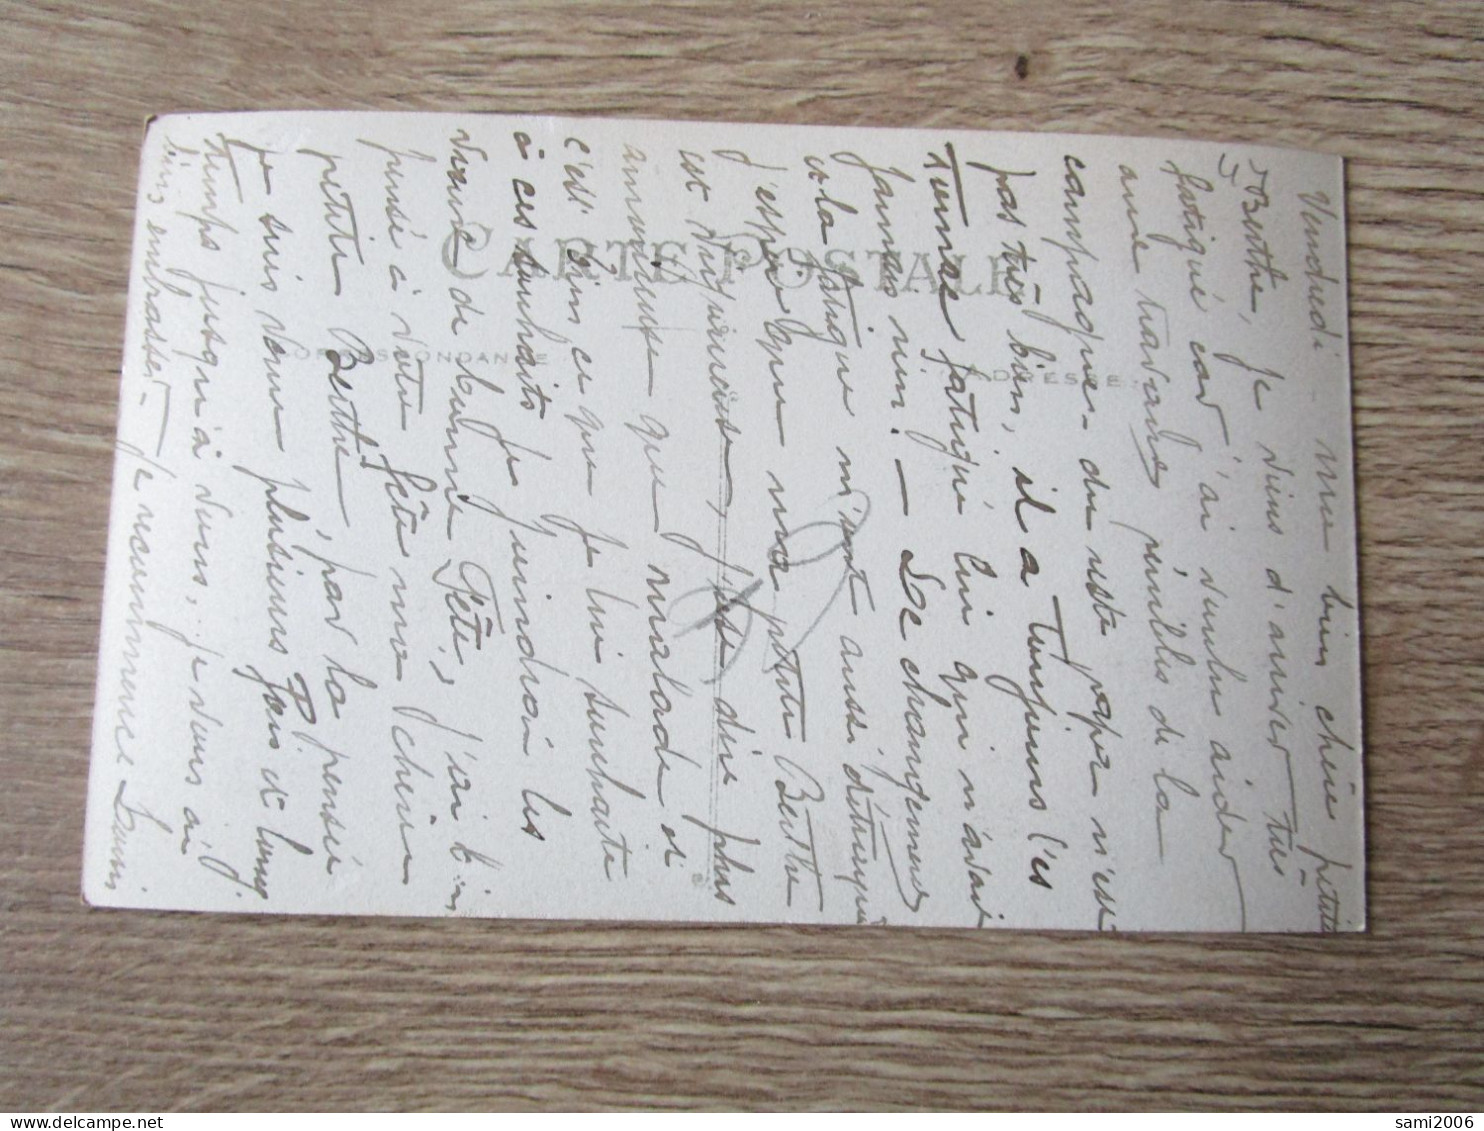 Vendredi - ma bien chère petite
Berthe, je viens d'arriver très
fatigué car j'ai voulu aider
aux travaux pénibles de la
campagne. du reste papa n'est
pas très bien, il a toujours l'es
fatigué lui qui n'avait
jamais rien. — Le changement
et la fatigue m'ont aussi
J'espère que ma petite Berthe
est plus
que malade si
c'est bien ce que je lui souhaite
à ces souhaits je joindrai les
vœux de bonne Fête, j'ai bien
pensé à votre fête ma chérie
petite Berthe, par la pensée
je suis venu plusieurs fois et long
temps jusqu'à vous, je vous ai
bien embrassée. Je recommence
CARTE POSTALE
CORRESPONDANCE
ADRESSE
sami2006